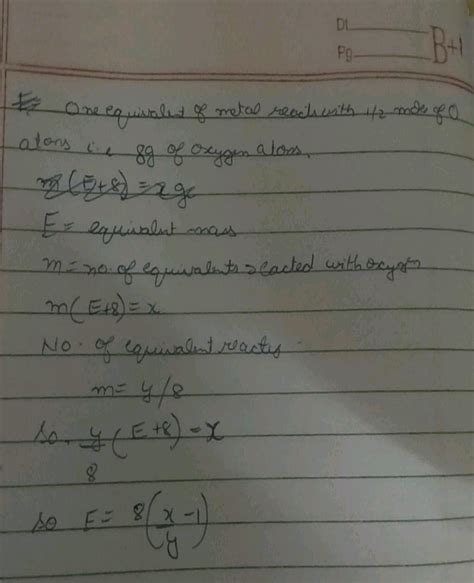 DI
Pg
B+1
One equivalent of metal reacts with 1/2 mole of O
atoms i.e 8g of oxygen atoms.
m(E+8) = x gx
E = equivalent mass
m = no. of equivalents reacted with oxygen
m(E+8) = x
No. of equivalent reacts
m = y/8
so. y/8 (E+8) = x
so E = 8(x-1/y)